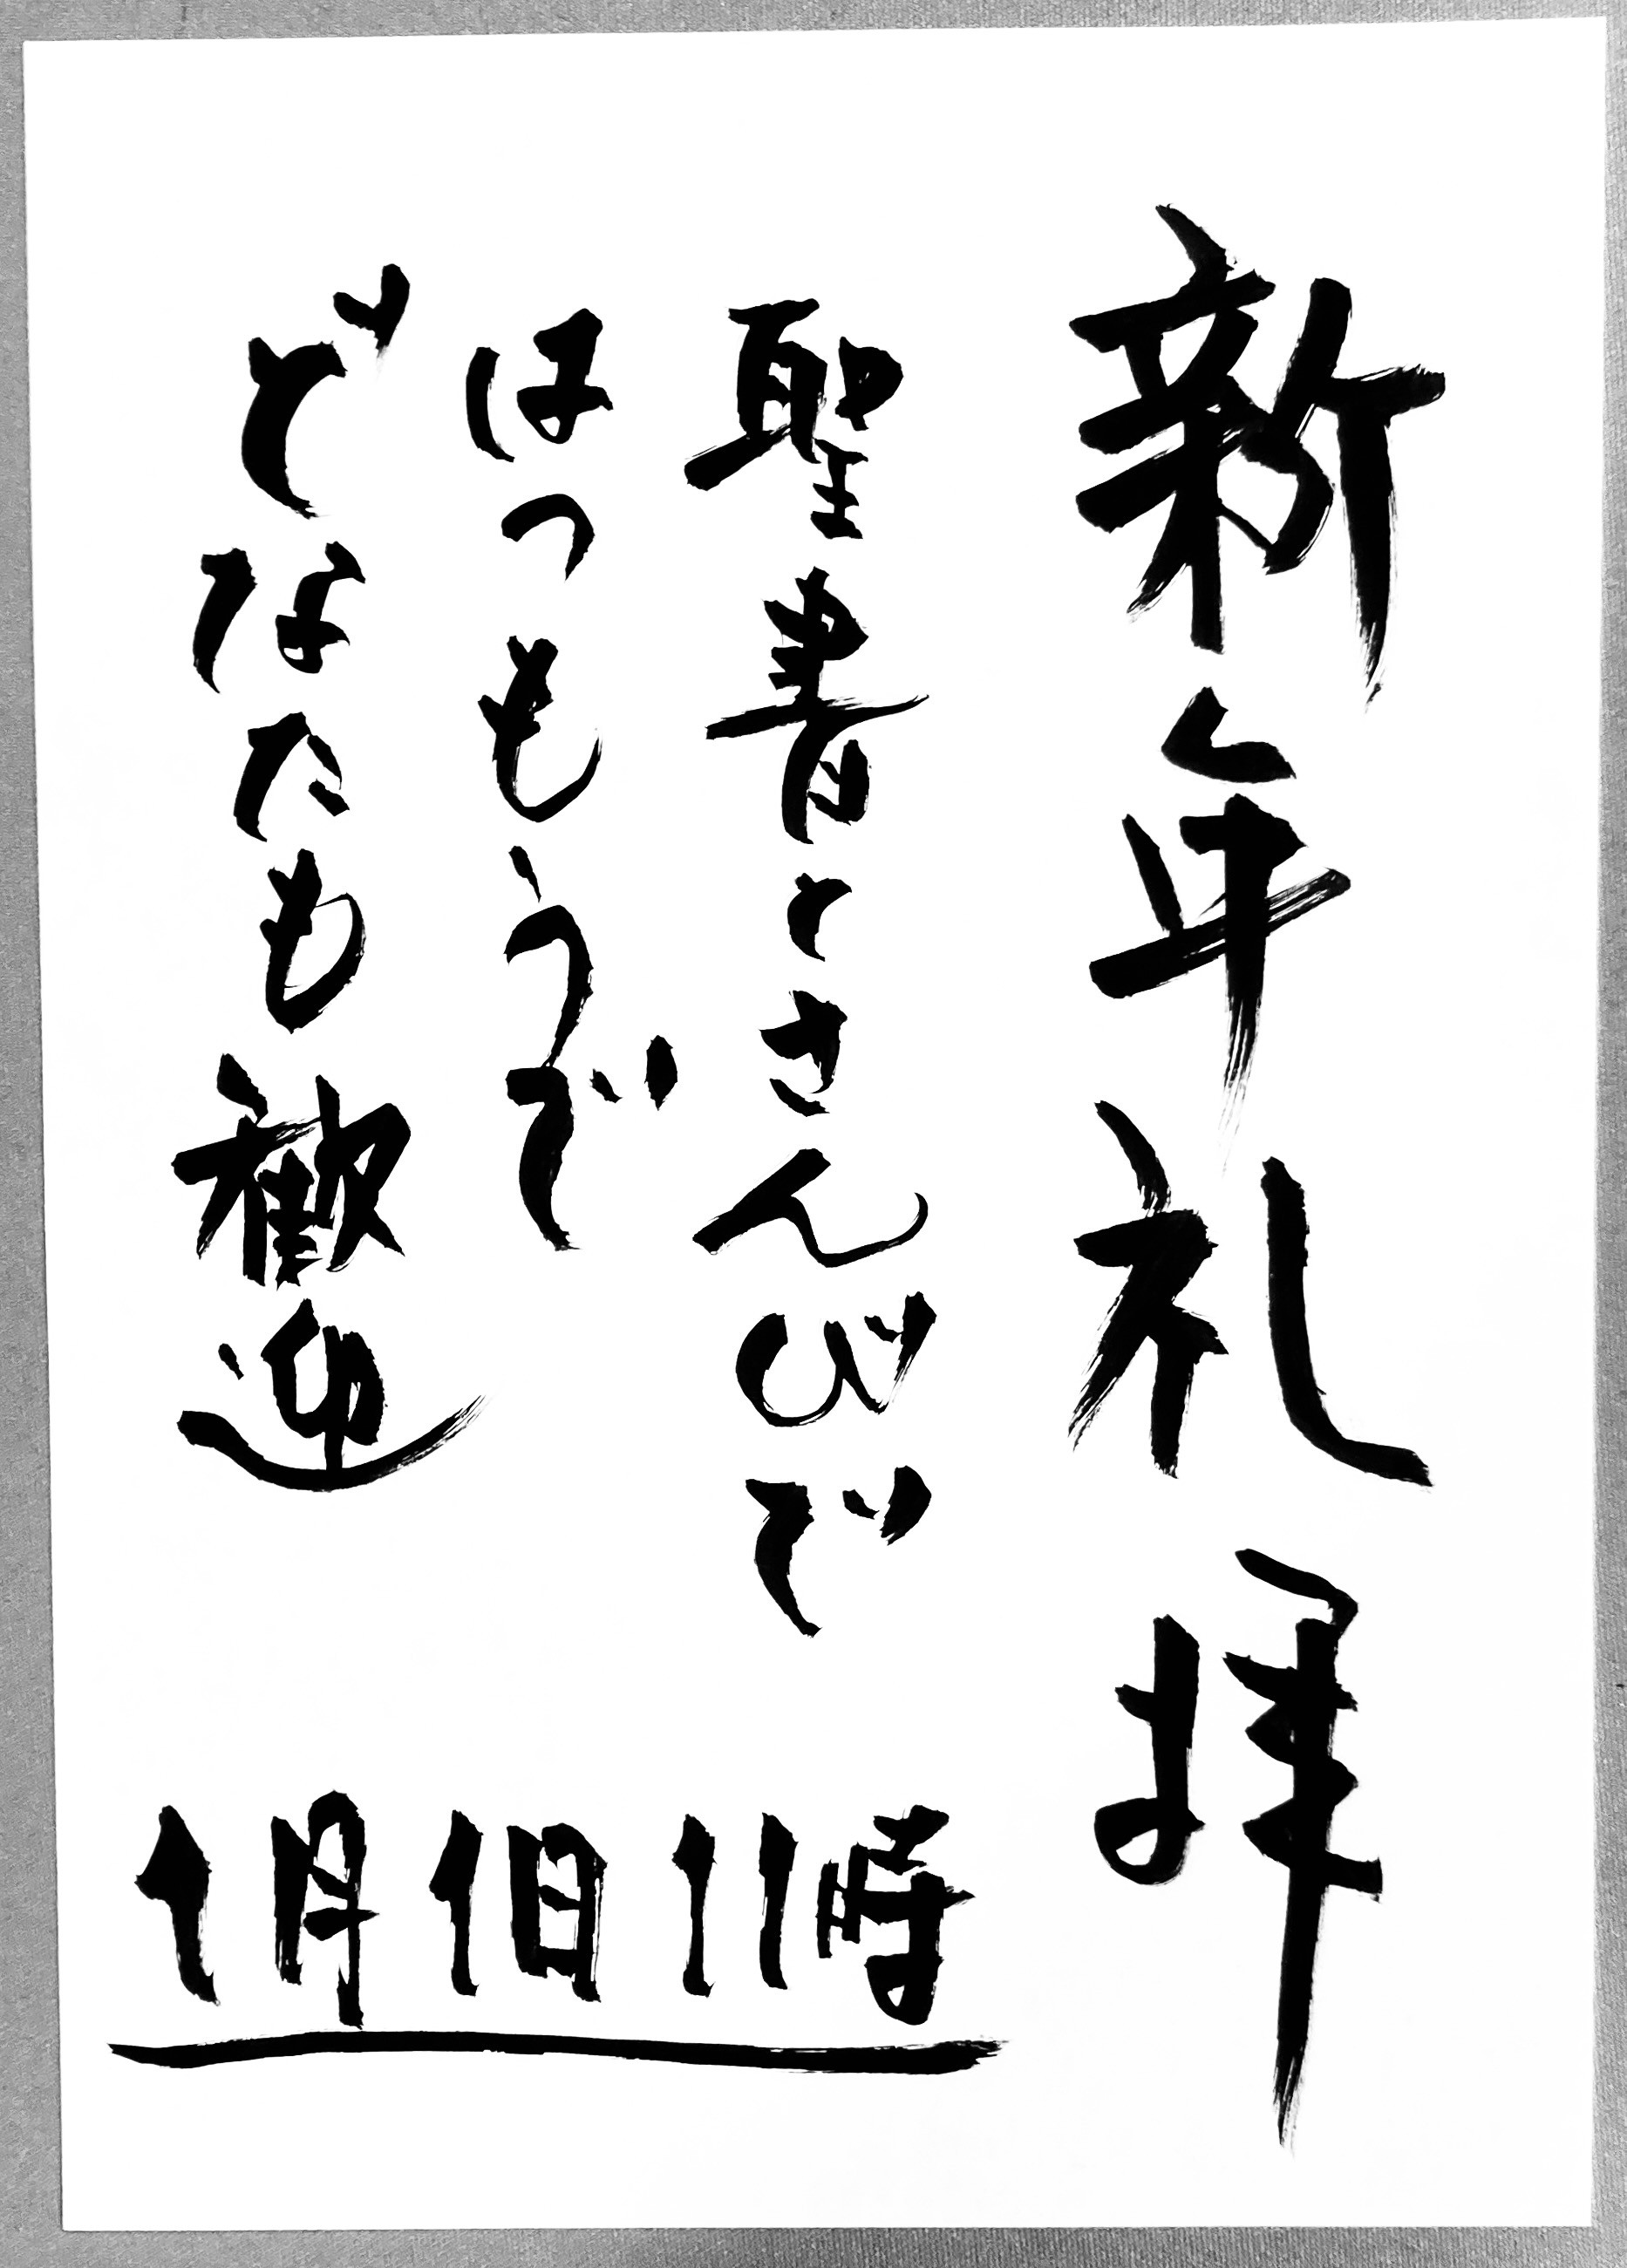 新年礼拝
聖書とさんびで
はつもうで
どなたも歓迎
1月1日11時